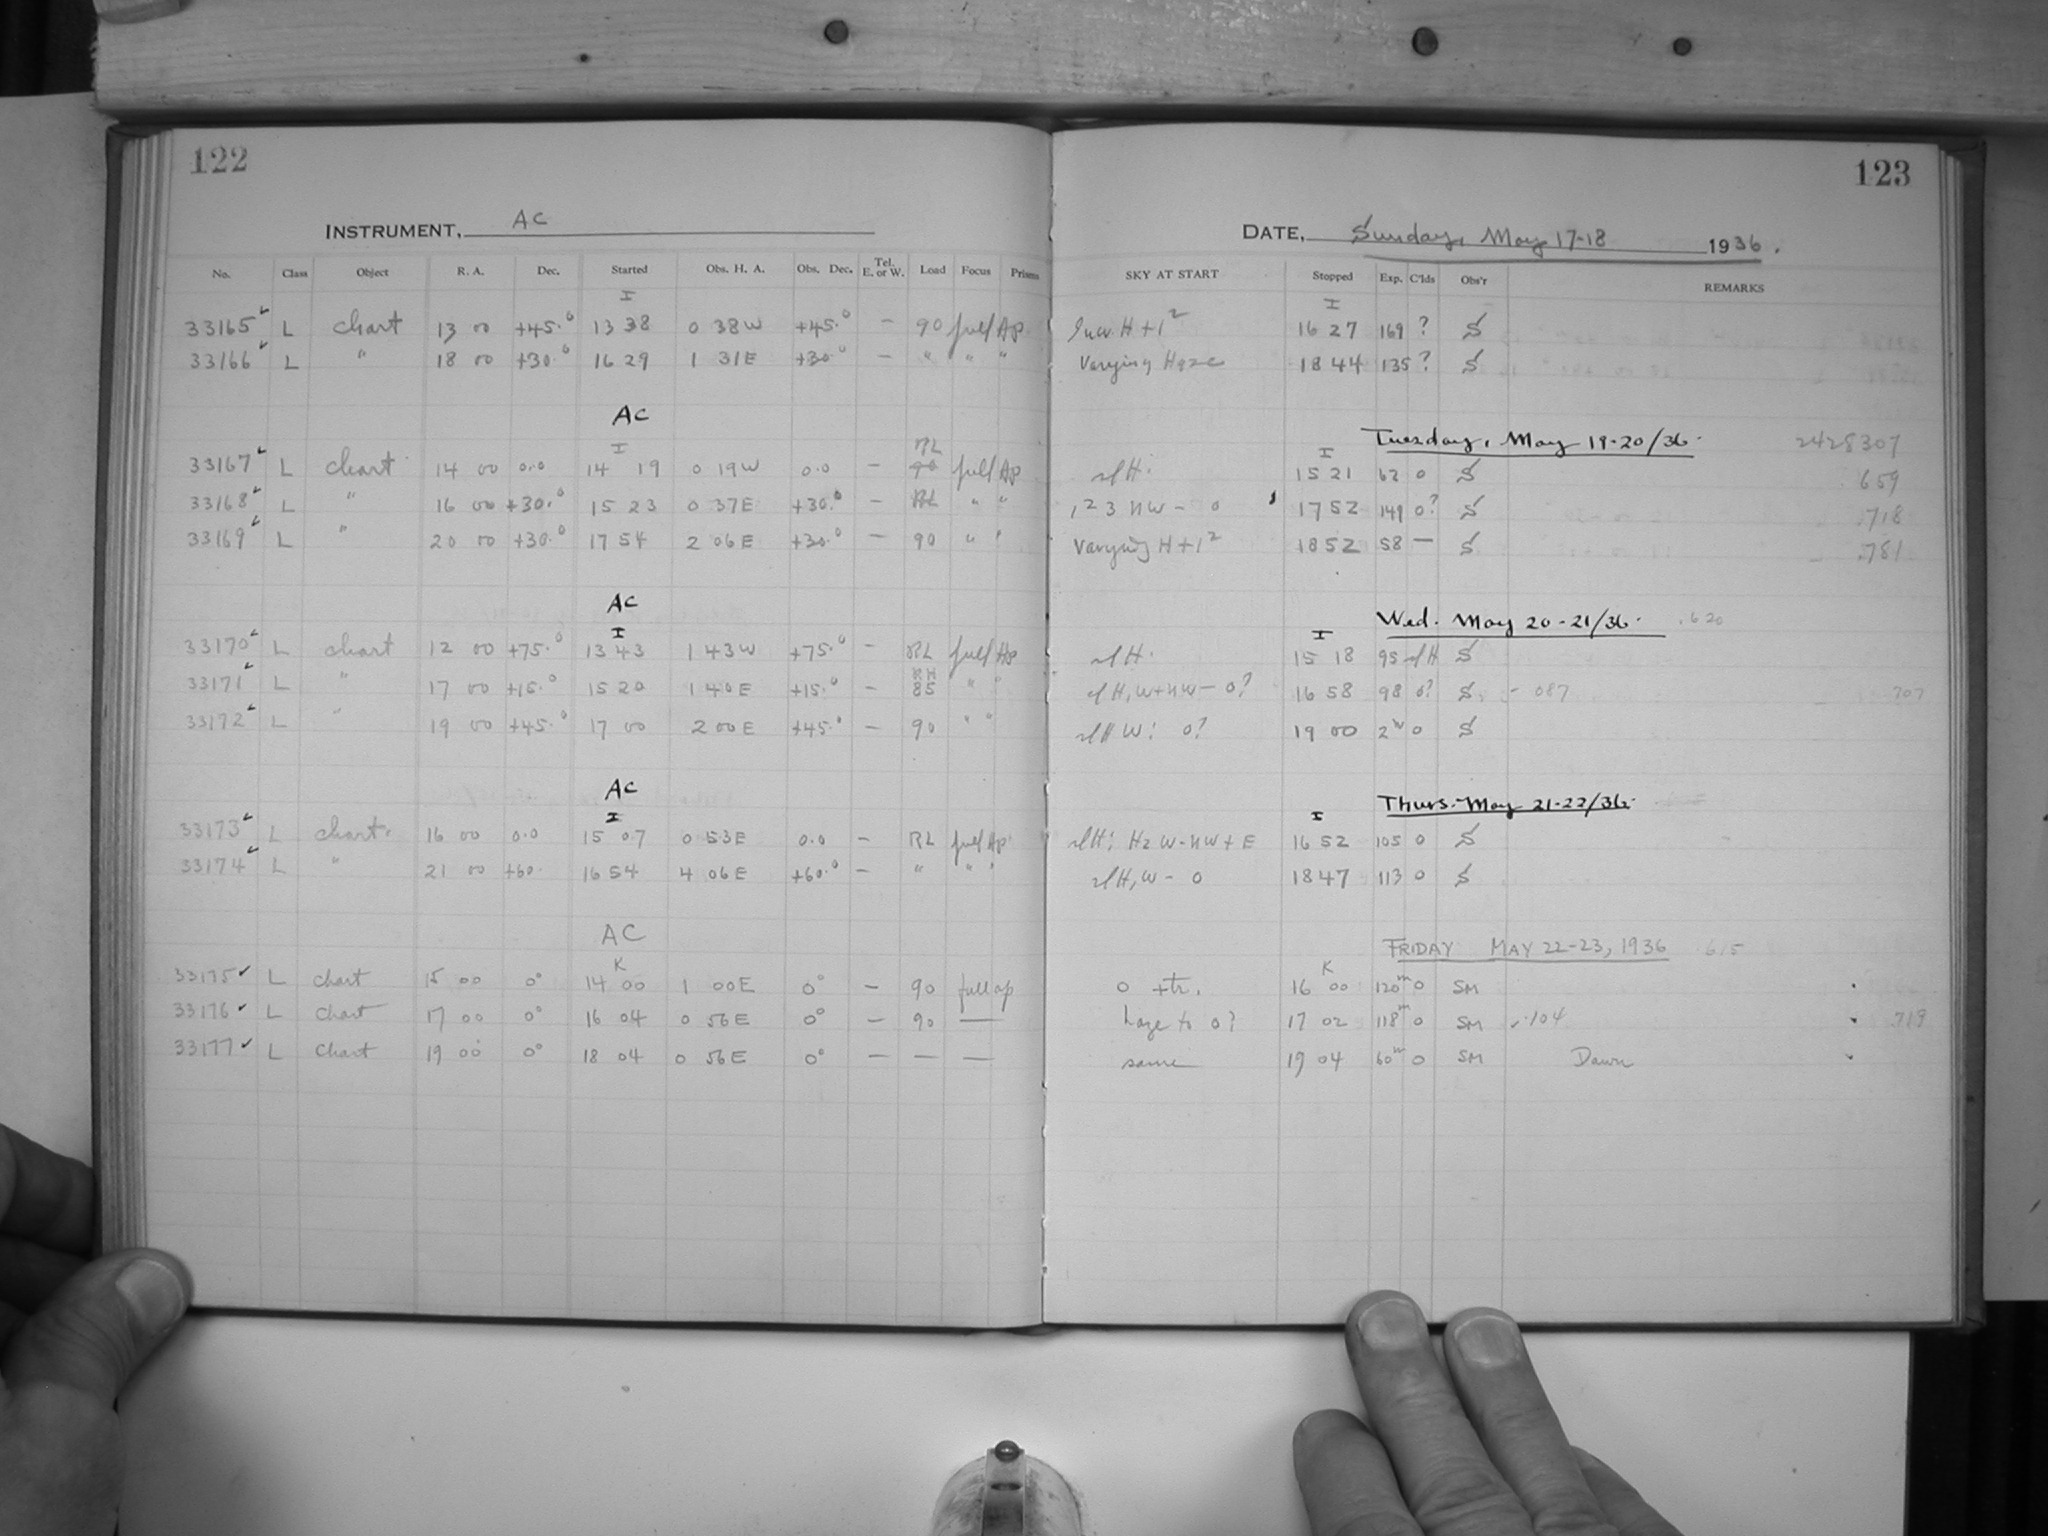 122
INSTRUMENT, AC
No. Class Object R. A. Dec. Started Obs. H. A. Obs. Dec. Tel. E. or W. Load Focus Prisms
I
33165 L chart 13 00 +45.° 13 38 0 38W +45.° — 90 full Ap.
33166 L " 18 00 +30.° 16 29 1 31E +30.° — " " "
AC
I
RL
33167 L chart 14 00 0.0 14 19 0 19W 0.0 — 90 full Ap
33168 L " 16 00 +30.° 15 23 0 37E +30.° — RL " "
33169 L " 20 00 +30.° 17 54 2 06E +30.° — 90 " "
AC
I
33170 L chart 12 00 +75.° 13 43 1 43W +75.° — RL full Ap
33171 L " 17 00 +15.° 15 20 1 40E +15.° — 85 " "
33172 L " 19 00 +45.° 17 00 2 00E +45.° — 90 " "
AC
I
33173 L chart. 16 00 0.0 15 07 0 53E 0.0 — RL full Ap.
33174 L " 21 00 +60. 16 54 4 06E +60.° — " " "
AC
K
33175 L chart 15 00 0° 14 00 1 00E 0° — 90 full ap
33176 L chart 17 00 0° 16 04 0 56E 0° — 90 —
33177 L chart 19 00 0° 18 04 0 56E 0° — — —
123
DATE, Sunday, May 17-18 1936.
SKY AT START Stopped Exp. C'lds Obs'r REMARKS
I
H+1² 16 27 169 ? S
Varying Haze 18 44 135 ? S
Tuesday, May 19-20/36. 2428307
I
slH. 15 21 62 0 S .659
1 2 3 NW - 0 17 52 149 0? S .718
Varying H+1² 18 52 58 — S .781
Wed. May 20-21/36. .620
I
slH. 15 18 95 slH S
slH, W+NW - 0? 16 58 98 0? S. - 087 707
slH W: 0? 19 00 2ʰ 0 S
Thurs. May 21-22/36.
I
slH: Hz W-NW+E 16 52 105 0 S
slH, W - 0 18 47 113 0 S
FRIDAY MAY 22-23, 1936 .615
K
0 +tr. 16 00 120ᵐ 0 SM
haze to 0? 17 02 118ᵐ 0 SM -.104 .719
same 19 04 60ᵐ 0 SM Dawn